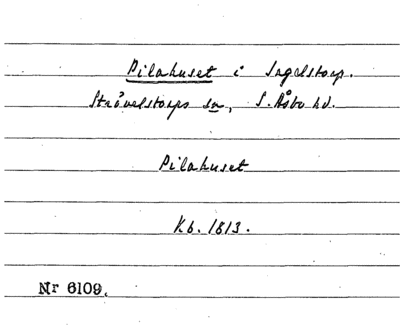 Pilahuset i Ingelstorp.
Strövelstorps sn, S. Åsbo hd.
Pilahuset
Kb. 1813.
Nr 6109.